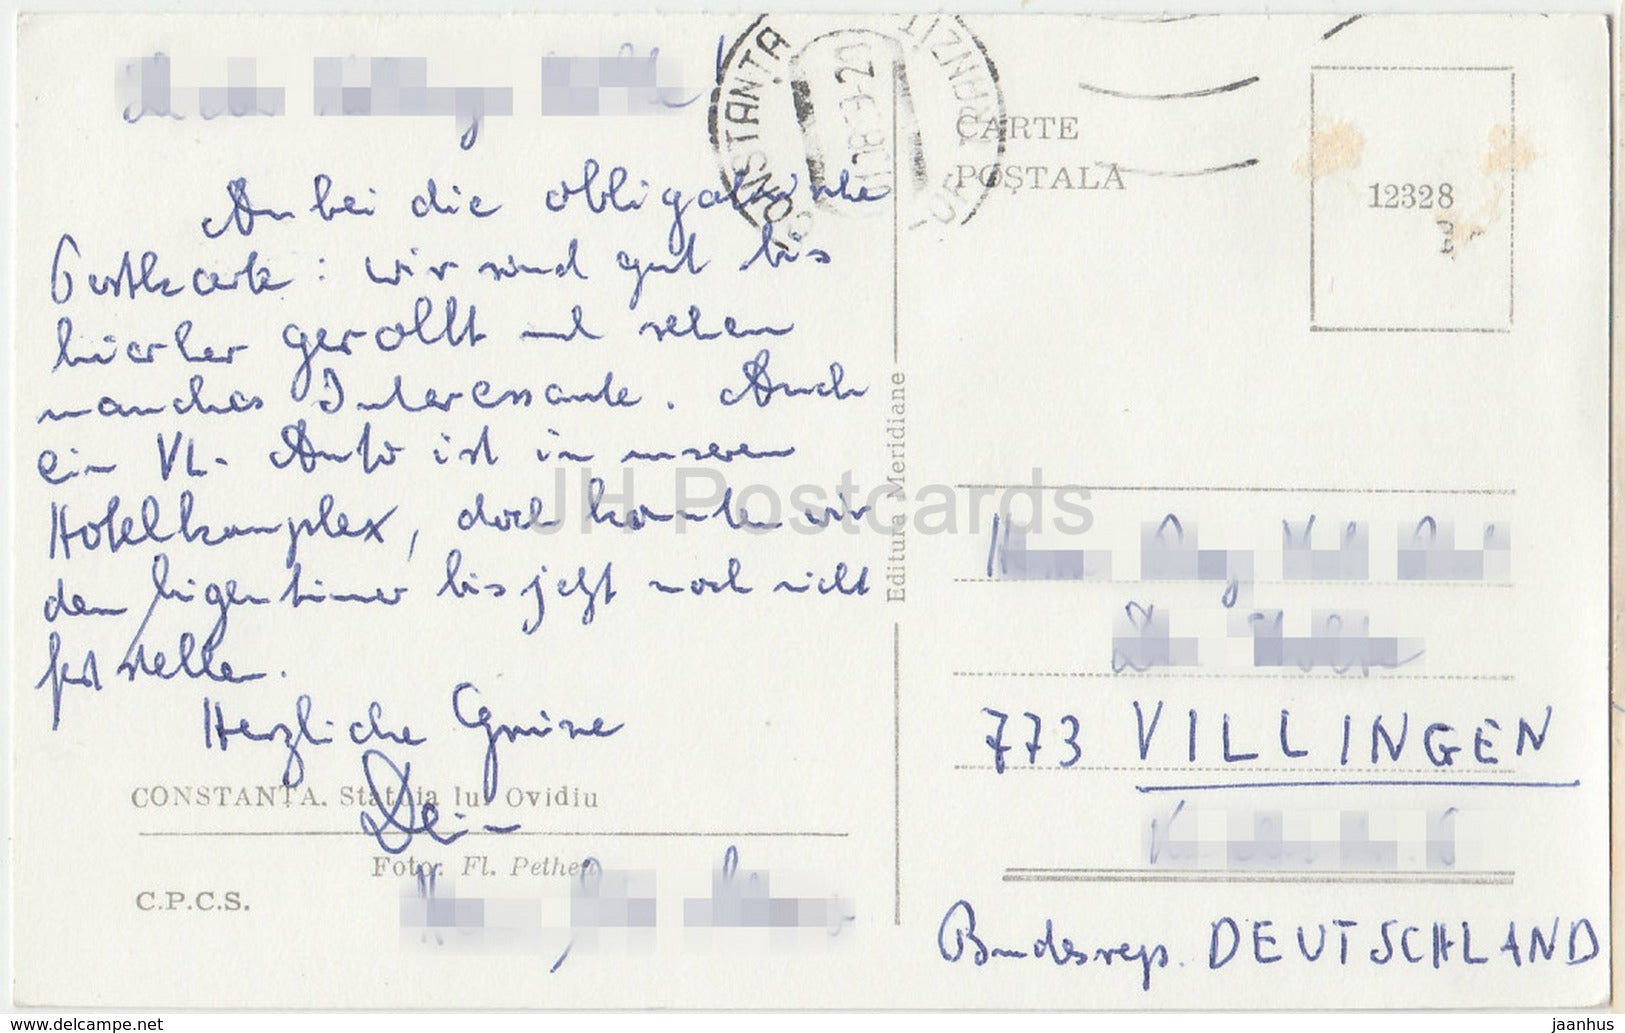 Anbei die obligatorische
Postkarte: wir sind gut bis
hierher gerollt und sehen
manches Interessante. Auch
ein VL-Auto ist in unserem
Hotelkomplex, doch konnten wir
den Eigentümer bis jetzt noch nicht
feststellen.
Herzliche Grüsse
CONSTANȚA. Statuia lui Ovidiu
Foto: Fl. Pethea
C.P.C.S.
Editura Meridiane
CONSTANȚA
CARTE
POȘTALĂ
12328
773 VILLINGEN
Bundesrep. DEUTSCHLAND
JH Postcards
www.delcampe.net
jaanhus